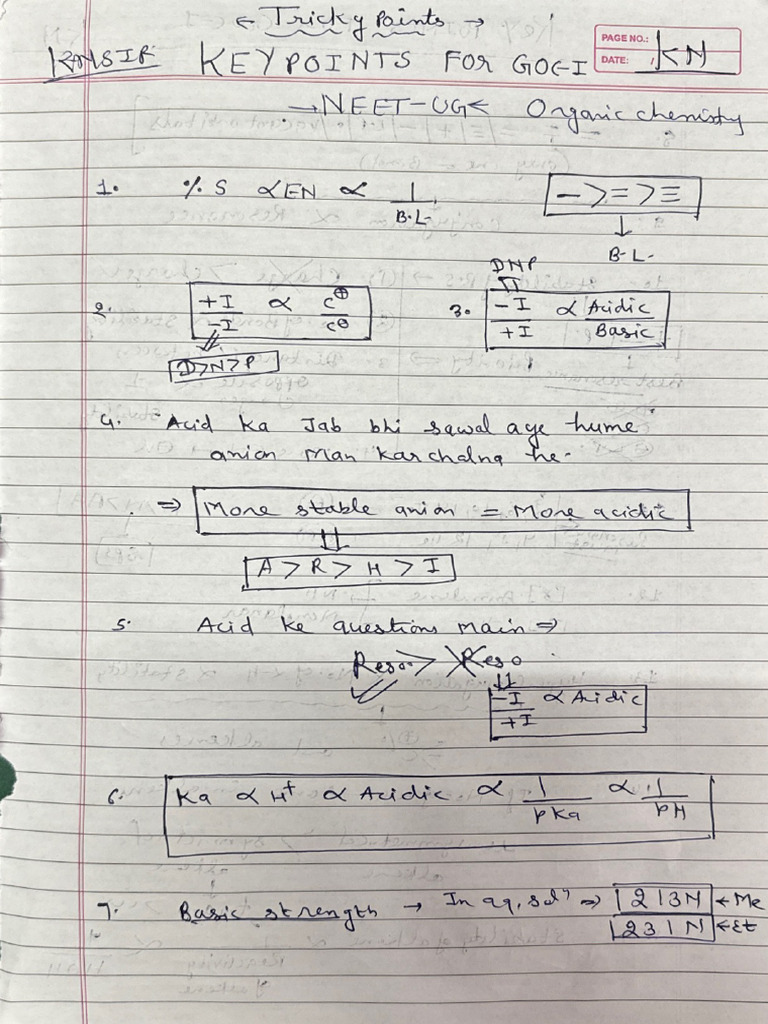 ← Tricky Points →
KNSIR KEYPOINTS FOR GOC-I
PAGE NO.:
DATE: KN
→ NEET-UG ← Organic chemistry
1. % S ∝ EN ∝ 1/B.L. — > = > ≡
↓
B.L.
DNP
2. +I/-I ∝ C⊕/C⊖ 3. -I/+I ∝ Acidic/Basic
D>N>P
4. Acid ka Jab bhi sawal aye hume
anion man kar chalna he.
⇒ More stable anion = More acidic
⇓
A > R > H > I
5. Acid ke questions main ⇒
Reso. > Reso
⇓
-I/+I ∝ Acidic
6. Ka ∝ H+ ∝ Acidic ∝ 1/pKa ∝ 1/pH
7. Basic strength → In aq. solⁿ ⇒ 1 2 1 3 N ← Me
1 2 3 1 N ← Et